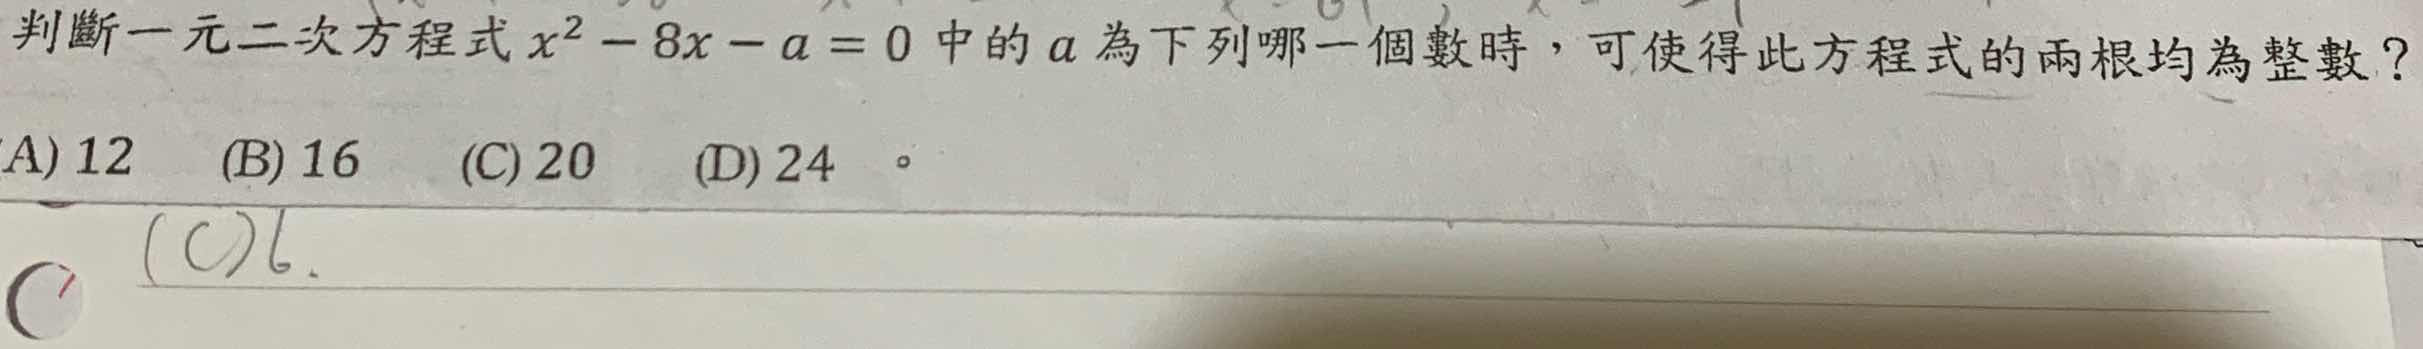 判斷一元二次方程式 x² − 8x − a = 0 中的 a 為下列哪一個數時，可使得此方程式的兩根均為整數？
A) 12 (B) 16 (C) 20 (D) 24 。
(C)6.